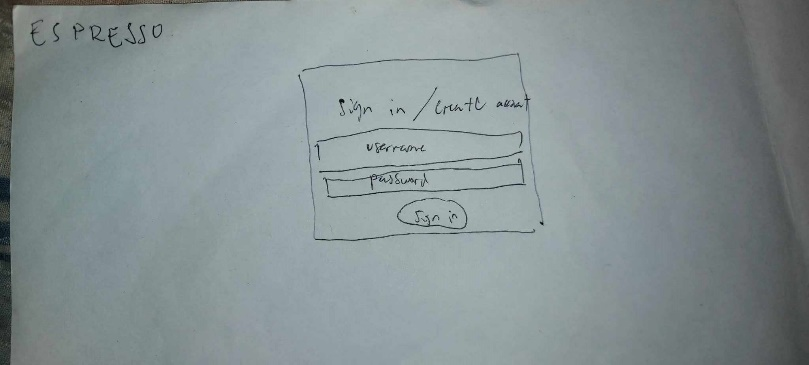 ESPRESSO
Sign in / create account
username
password
Sign in